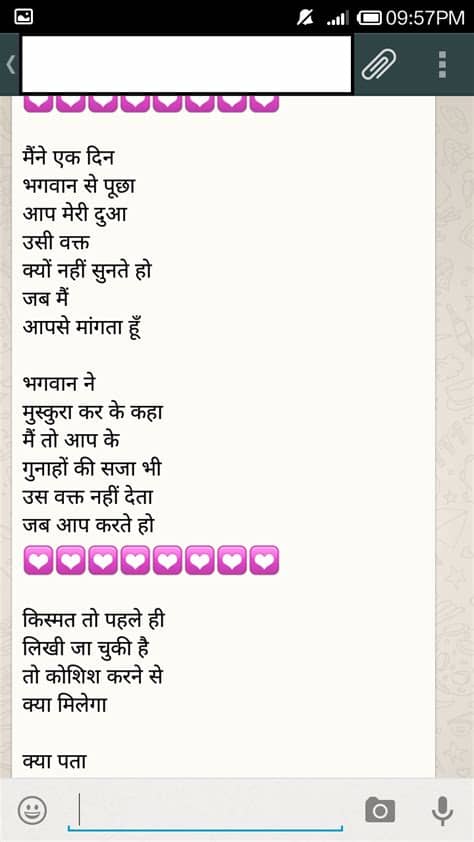 09:57PM
मैंने एक दिन
भगवान से पूछा
आप मेरी दुआ
उसी वक्त
क्यों नहीं सुनते हो
जब मैं
आपसे मांगता हूँ
भगवान ने
मुस्कुरा कर के कहा
मैं तो आप के
गुनाहों की सजा भी
उस वक्त नहीं देता
जब आप करते हो
किस्मत तो पहले ही
लिखी जा चुकी है
तो कोशिश करने से
क्या मिलेगा
क्या पता